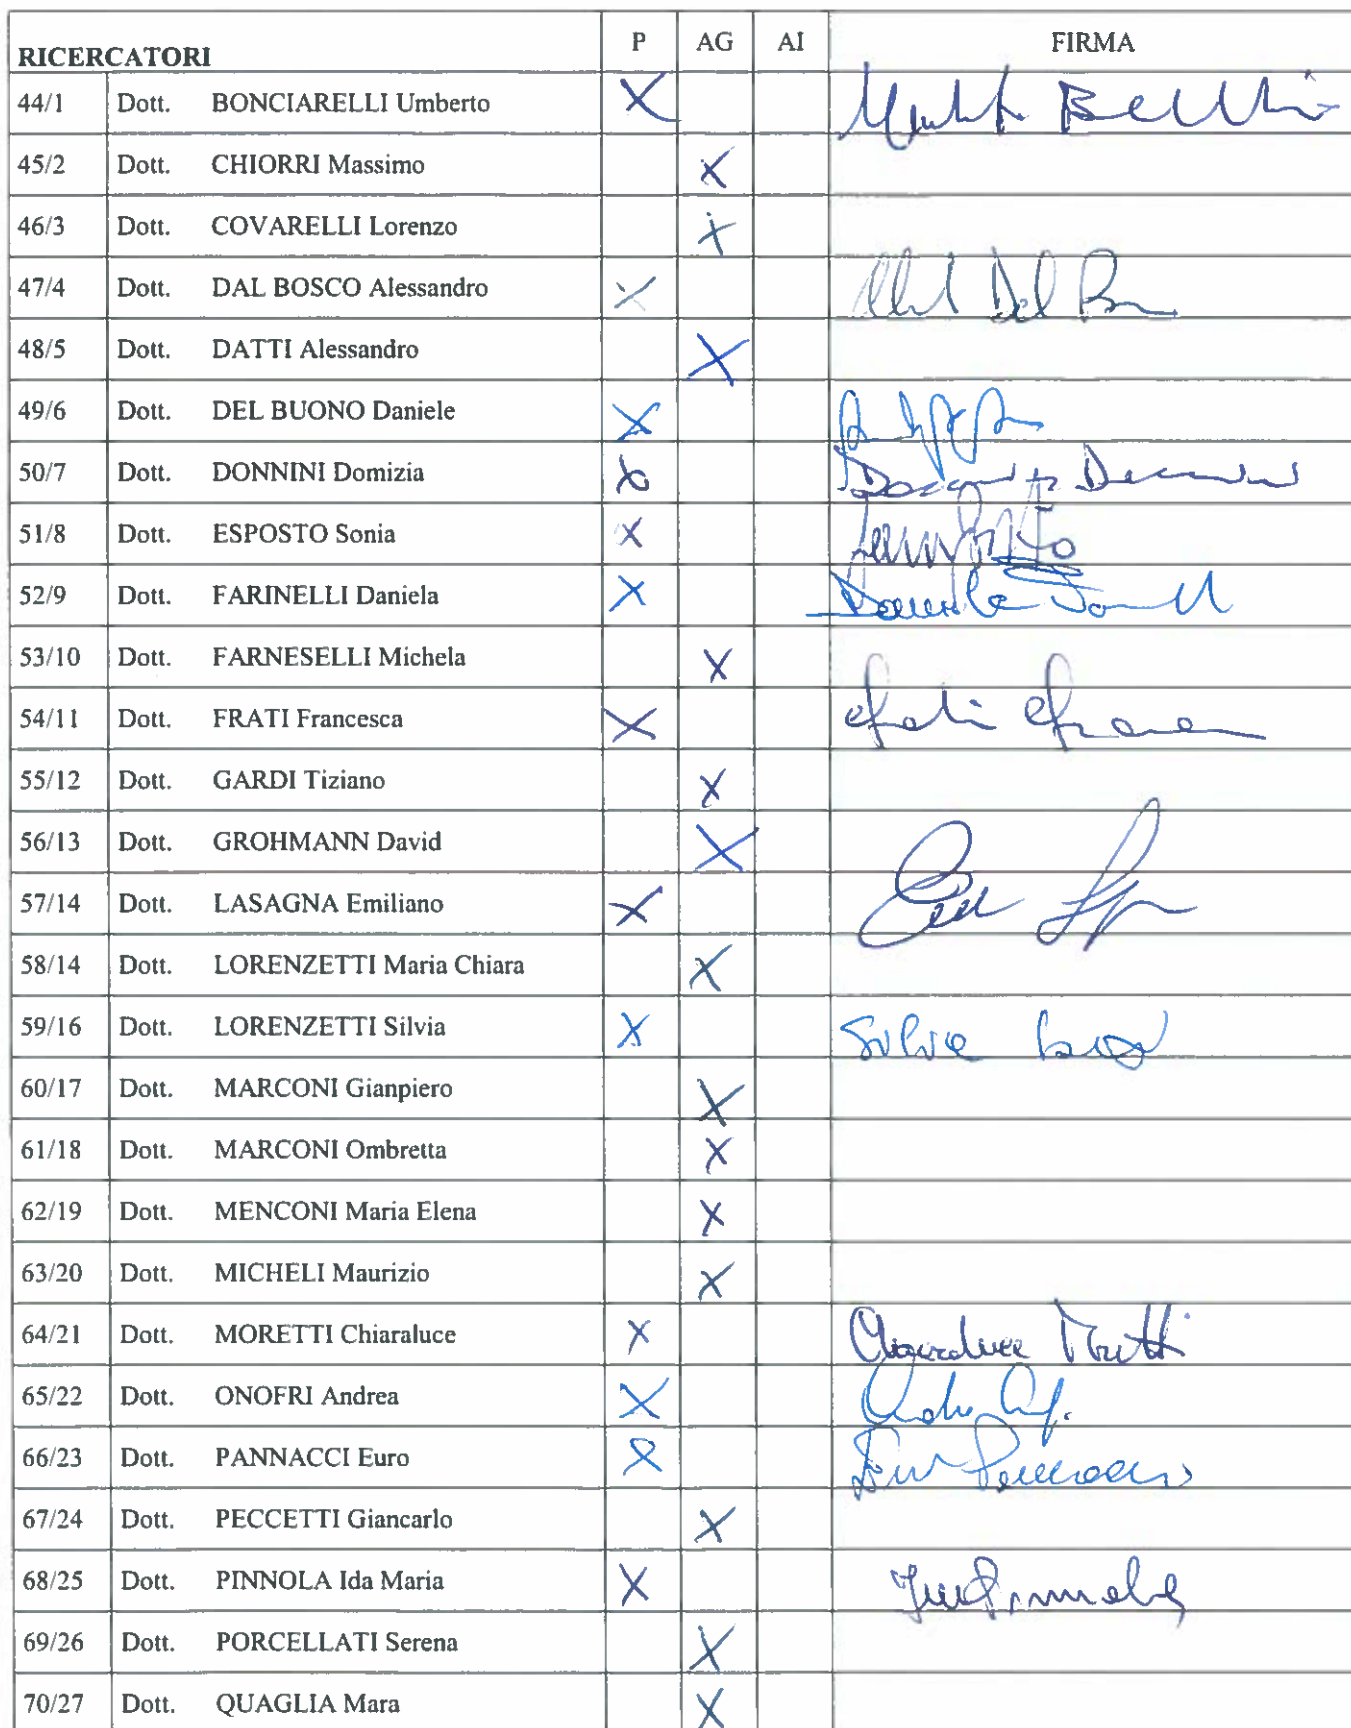 RICERCATORI P AG AI FIRMA
44/1 Dott. BONCIARELLI Umberto X
45/2 Dott. CHIORRI Massimo X
46/3 Dott. COVARELLI Lorenzo X
47/4 Dott. DAL BOSCO Alessandro X
48/5 Dott. DATTI Alessandro X
49/6 Dott. DEL BUONO Daniele X
50/7 Dott. DONNINI Domizia X
51/8 Dott. ESPOSTO Sonia X
52/9 Dott. FARINELLI Daniela X
53/10 Dott. FARNESELLI Michela X
54/11 Dott. FRATI Francesca X
55/12 Dott. GARDI Tiziano X
56/13 Dott. GROHMANN David X
57/14 Dott. LASAGNA Emiliano X
58/14 Dott. LORENZETTI Maria Chiara X
59/16 Dott. LORENZETTI Silvia X Silvia
60/17 Dott. MARCONI Gianpiero X
61/18 Dott. MARCONI Ombretta X
62/19 Dott. MENCONI Maria Elena X
63/20 Dott. MICHELI Maurizio X
64/21 Dott. MORETTI Chiaraluce X Chiaraluce Moretti
65/22 Dott. ONOFRI Andrea X
66/23 Dott. PANNACCI Euro X
67/24 Dott. PECCETTI Giancarlo X
68/25 Dott. PINNOLA Ida Maria X
69/26 Dott. PORCELLATI Serena X
70/27 Dott. QUAGLIA Mara X